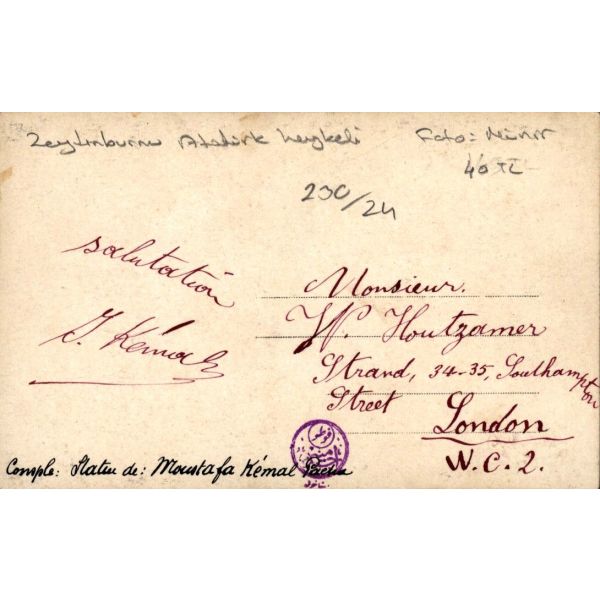 Zeytinburnu Atatürk heykeli Foto: Münir
40 TL
230/24
salutation
J. Kémal
Monsieur.
W. Houtzamer
Strand, 34-35, Southampton
Street London
W.C.2.
Conple: Statue de: Moustafa Kémal Pacha